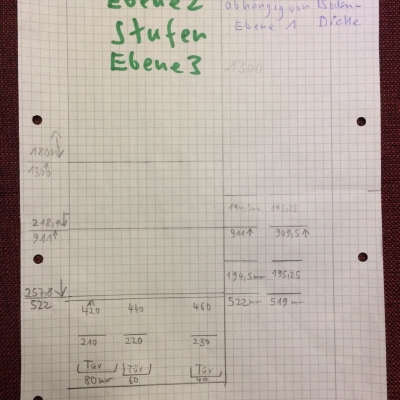 Ebene 2
abhängig von Boden-
Ebene 1 Dicke
Stufen
Ebene 3
1300
1200↓
1300↑
194,5mm 195,25
218,9↓
911↑
911↑ 909,5↑
194,5mm 195,25
257,8↓
522
522mm 519mm
420 440 460
210 220 230
Tür Tür Tür
80mm 60 40